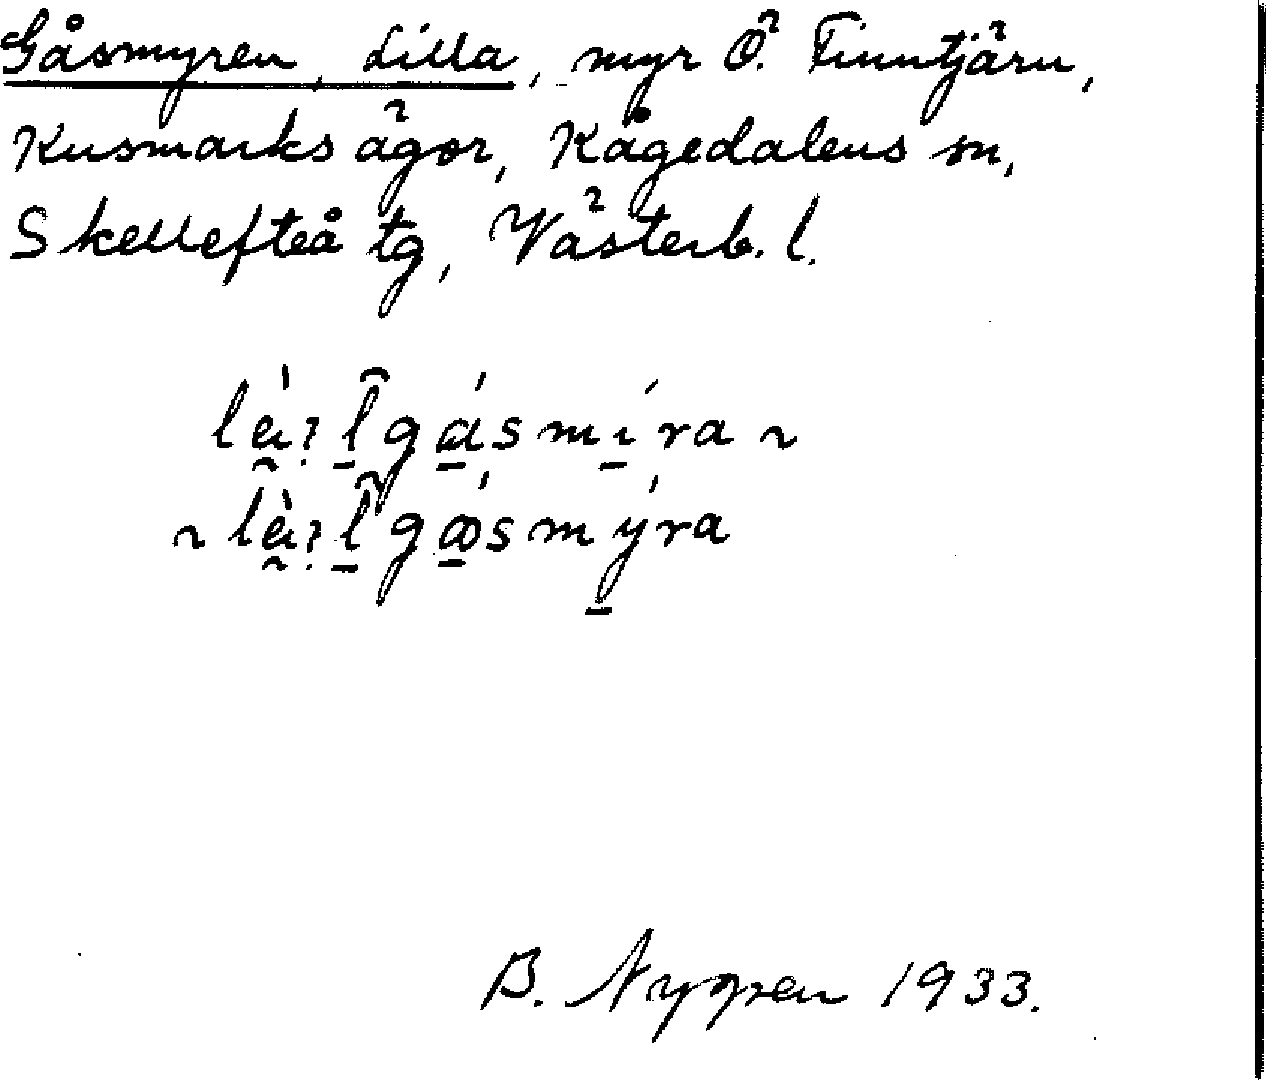 Gåsmyren, Lilla, myr Ö. Finntjärn,
Kusmarks ägor, Kågedalens sn,
Skellefteå tg, Västerb. l.
B. Nygren 1933.